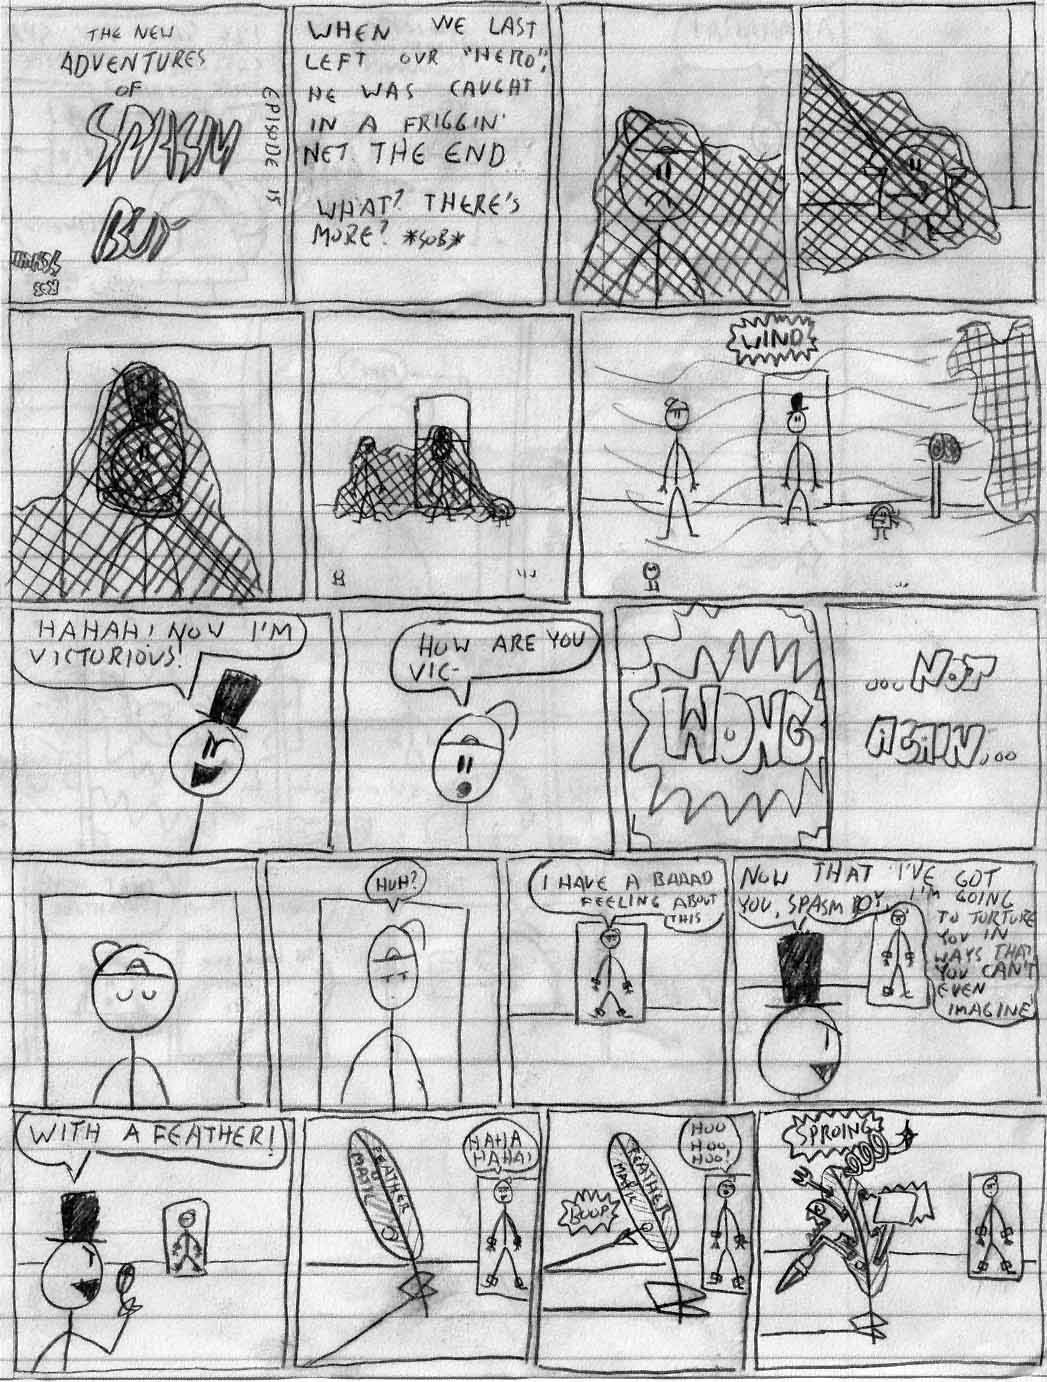 THE NEW
ADVENTURES
OF
SPASM
BOY
EPISODE 15
WHEN WE LAST
LEFT OUR "HERO",
HE WAS CAUGHT
IN A FRIGGIN'
NET. THE END
WHAT? THERE'S
MORE? *SOB*
WIND
HAHAH! NOW I'M
VICTURIOUS!
HOW ARE YOU
VIC-
WONG
...NOT
AGAIN...
HUH?
I HAVE A BAAAD
FEELING ABOUT
THIS
NOW THAT I'VE GOT
YOU, SPASM BOY, I'M GOING
TO TORTURE
YOU IN
WAYS THAT
YOU CAN'T
EVEN
IMAGINE
WITH A FEATHER!
FEATHER
O
MATIC
HAHA
HAHA!
FEATHER
O
MATIC
BOOP
HOO
HOO
HOO!
SPROING